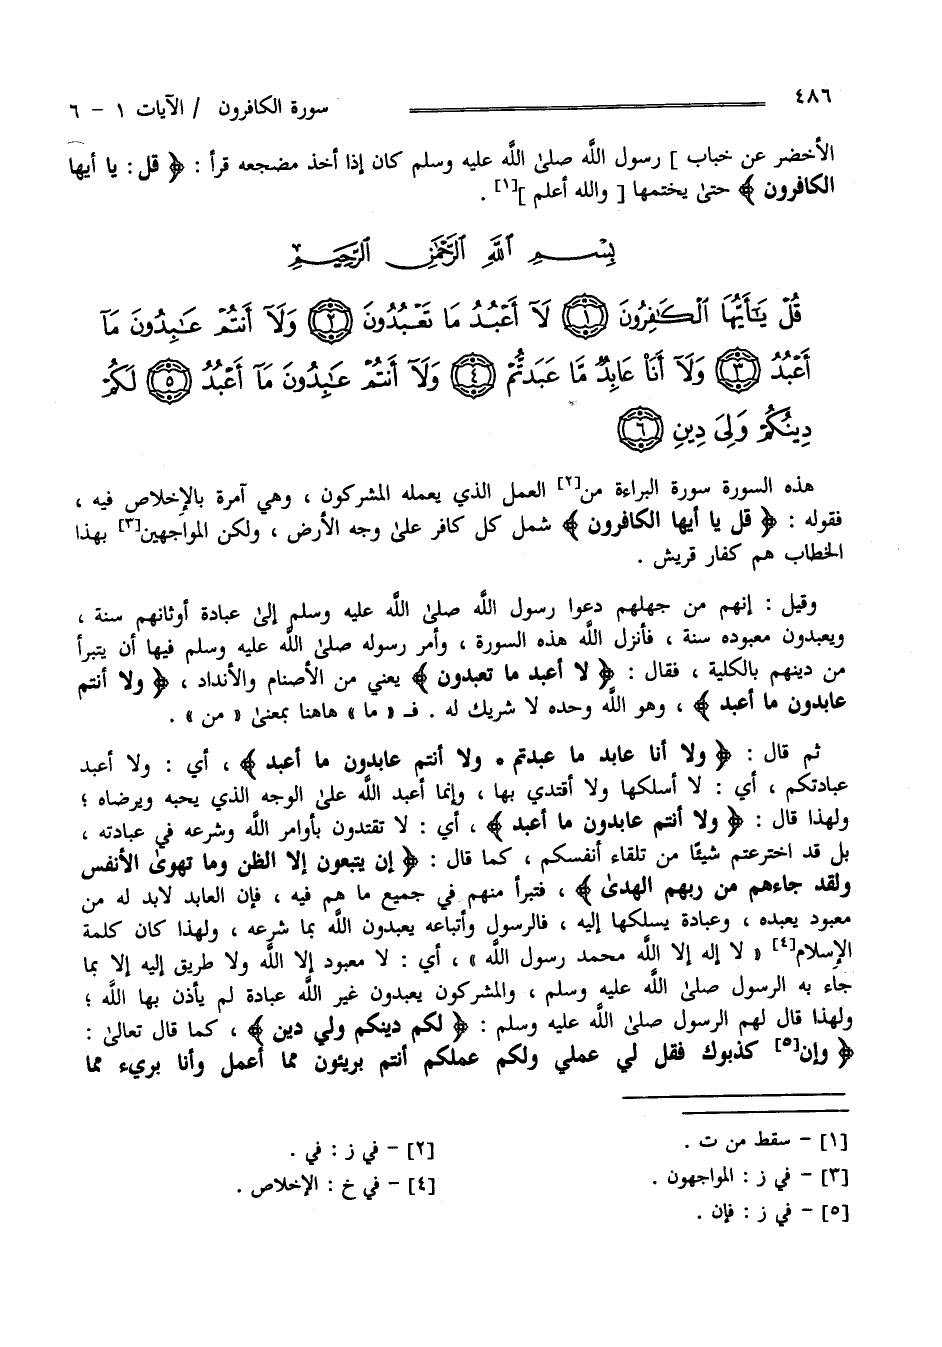 ٤٨٦ سورة الكافرون / الآيات ١ - ٦
الأخضر عن خباب ] رسول الله صلىٰ الله عليه وسلم كان إذا أخذ مضجعه قرأ : ﴿ قل : يا أيها
الكافرون ﴾ حتىٰ يختمها [ والله أعلم ][١] .
بِسْمِ ٱللَّهِ ٱلرَّحْمَٰنِ ٱلرَّحِيمِ
قُلْ يَٰٓأَيُّهَا ٱلْكَٰفِرُونَ ۝١ لَآ أَعْبُدُ مَا تَعْبُدُونَ ۝٢ وَلَآ أَنتُمْ عَٰبِدُونَ مَآ
أَعْبُدُ ۝٣ وَلَآ أَنَا۠ عَابِدٌ مَّا عَبَدتُّمْ ۝٤ وَلَآ أَنتُمْ عَٰبِدُونَ مَآ أَعْبُدُ ۝٥ لَكُمْ
دِينُكُمْ وَلِىَ دِينِ ۝٦
هذه السورة سورة البراءة من[٢] العمل الذي يعمله المشركون ، وهي آمرة بالإخلاص فيه ،
فقوله : ﴿ قل يا أيها الكافرون ﴾ شمل كل كافر علىٰ وجه الأرض ، ولكن المواجهين[٣] بهذا
الخطاب هم كفار قريش .
وقيل : إنهم من جهلهم دعوا رسول الله صلىٰ الله عليه وسلم إلىٰ عبادة أوثانهم سنة ،
ويعبدون معبوده سنة ، فأنزل الله هذه السورة ، وأمر رسوله صلىٰ الله عليه وسلم فيها أن يتبرأ
من دينهم بالكلية ، فقال : ﴿ لا أعبد ما تعبدون ﴾ يعني من الأصنام والأنداد ، ﴿ ولا أنتم
عابدون ما أعبد ﴾ ، وهو الله وحده لا شريك له . فـ « ما » هاهنا بمعنىٰ « من » .
ثم قال : ﴿ ولا أنا عابد ما عبدتم * ولا أنتم عابدون ما أعبد ﴾ ، أي : ولا أعبد
عبادتكم ، أي : لا أسلكها ولا أقتدي بها ، وإنما أعبد الله علىٰ الوجه الذي يحبه ويرضاه ؛
ولهذا قال : ﴿ ولا أنتم عابدون ما أعبد ﴾ ، أي : لا تقتدون بأوامر الله وشرعه في عبادته ،
بل قد اخترعتم شيئًا من تلقاء أنفسكم ، كما قال : ﴿ إن يتبعون إلا الظن وما تهوىٰ الأنفس
ولقد جاءهم من ربهم الهدىٰ ﴾ ، فتبرأ منهم في جميع ما هم فيه ، فإن العابد لابد له من
معبود يعبده ، وعبادة يسلكها إليه ، فالرسول وأتباعه يعبدون الله بما شرعه ، ولهذا كان كلمة
الإسلام[٤] « لا إله إلا الله محمد رسول الله » ، أي : لا معبود إلا الله ولا طريق إليه إلا بما
جاء به الرسول صلىٰ الله عليه وسلم ، والمشركون يعبدون غير الله عبادة لم يأذن بها الله ؛
ولهذا قال لهم الرسول صلىٰ الله عليه وسلم : ﴿ لكم دينكم ولي دين ﴾ ، كما قال تعالىٰ :
﴿ وإن[٥] كذبوك فقل لي عملي ولكم عملكم أنتم بريئون مما أعمل وأنا بريء مما
[١] - سقط من ت . [٢] - في ز : في .
[٣] - في ز : المواجهون . [٤] - في خ : الإخلاص .
[٥] - في ز : فإن .